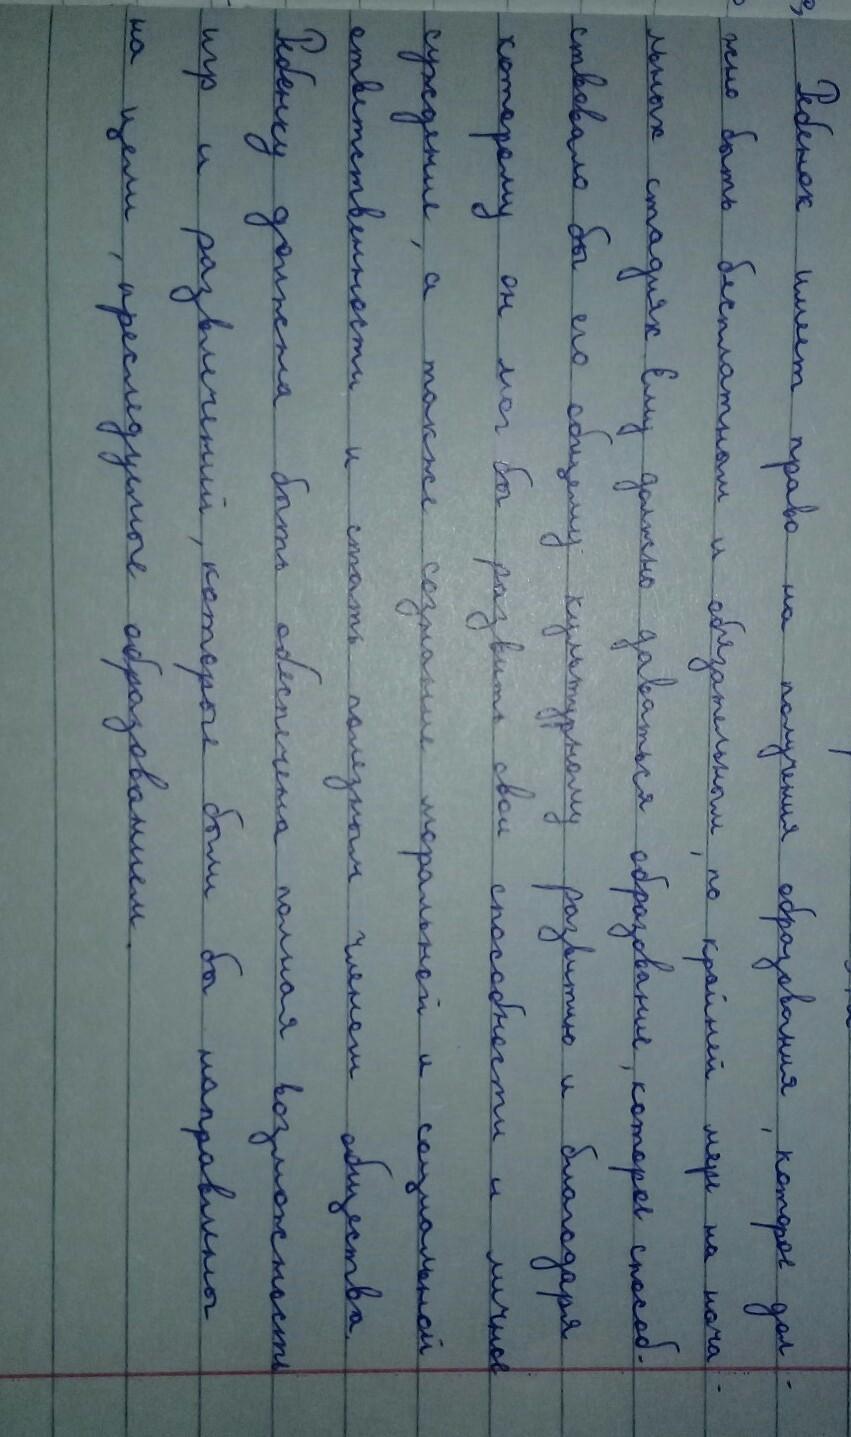 Ребенок имеет право на получения образования, которое дол-
жно быть бесплатным и обязательным, по крайней мере на нача-
льных стадиях Ему должно даваться образование, которое способ-
ствовало бы его общему культурному развитию и благодаря
которому он мог бы развить свои способности и личное
суждение, а также сознание моральной и социальной
ответственности и стать полезным членом общества.
Ребенку должна быть обеспечена полная возможность
игр и развлечений, которые были бы направлены
на цели, преследуемые образованием.